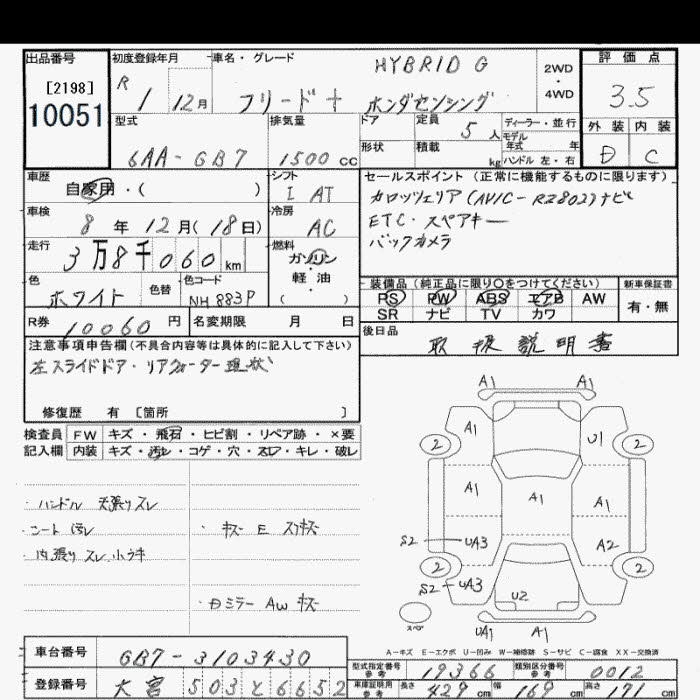 出品番号
[2198]
10051
初度登録年月
R 1 12月
車名・グレード
HYBRID G
フリード+ ホンダセンシング
2WD
・
4WD
評価点
3.5
外装 内装
D C
型式
6AA-GB7
排気量
1500 cc
ドア
形状
定員 5人
積載 kg
ディーラー・並行
モデル
年式 年
ハンドル 左・右
車歴
自家用・( )
シフト
I AT
車検
8年12月(18日)
冷房
AC
走行
3万8千060km
燃料
ガソリン
軽・油
( )
色
ホワイト
色替
色コード
NH883P
R券
10060円
名変期限 月 日
セールスポイント(正常に機能するものに限ります)
カロッツェリア(AVIC-RZ802)ナビ
ETC・スペアキー
バックカメラ
装備品(純正品に限り○をつけてください)
新車保証書
PS PW ABS エアB AW
SR ナビ TV カワ
有・無
後日品
取扱説明書
注意事項申告欄(不具合内容等は具体的に記入して下さい)
左スライドドア・リアクォーター現状
修復歴 有 [箇所 ]
検査員
記入欄
FW キズ・飛石・ヒビ割・リペア跡・×要
内装 キズ・汚レ・コゲ・穴・スレ・キレ・破レ
・ハンドル 天張りスレ
・シート 汚レ
・内張り スレ 小キ
・キズ E スリキズ
・Dミラー AW キズ
A1 A1
A1 U1
2 2
A1 A1 A1
S2 UA3 A2
2 2
S2 UA3
U2
スペア
UA1 A1
A-キズ E-エクボ U-凹み W-補修跡 S-サビ C-腐食 XX-交換済
車台番号
GB7-3103430
登録番号
大宮 503 と 6652
型式指定番号
参考
19366
類別区分番号
参考
0012
車庫証明用
参考
長さ 429 cm 幅 169 cm 高さ 171 cm